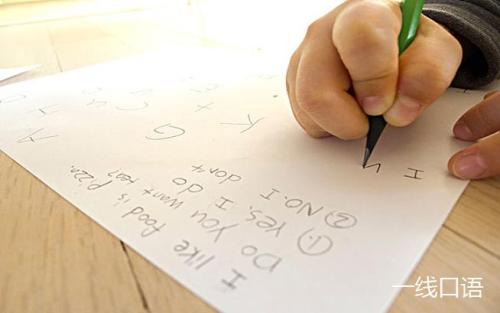 I like food is Pizza.
Do You want tea?
①. Yes, I do
② NO. I don4
A I
G K
I V
一线口语